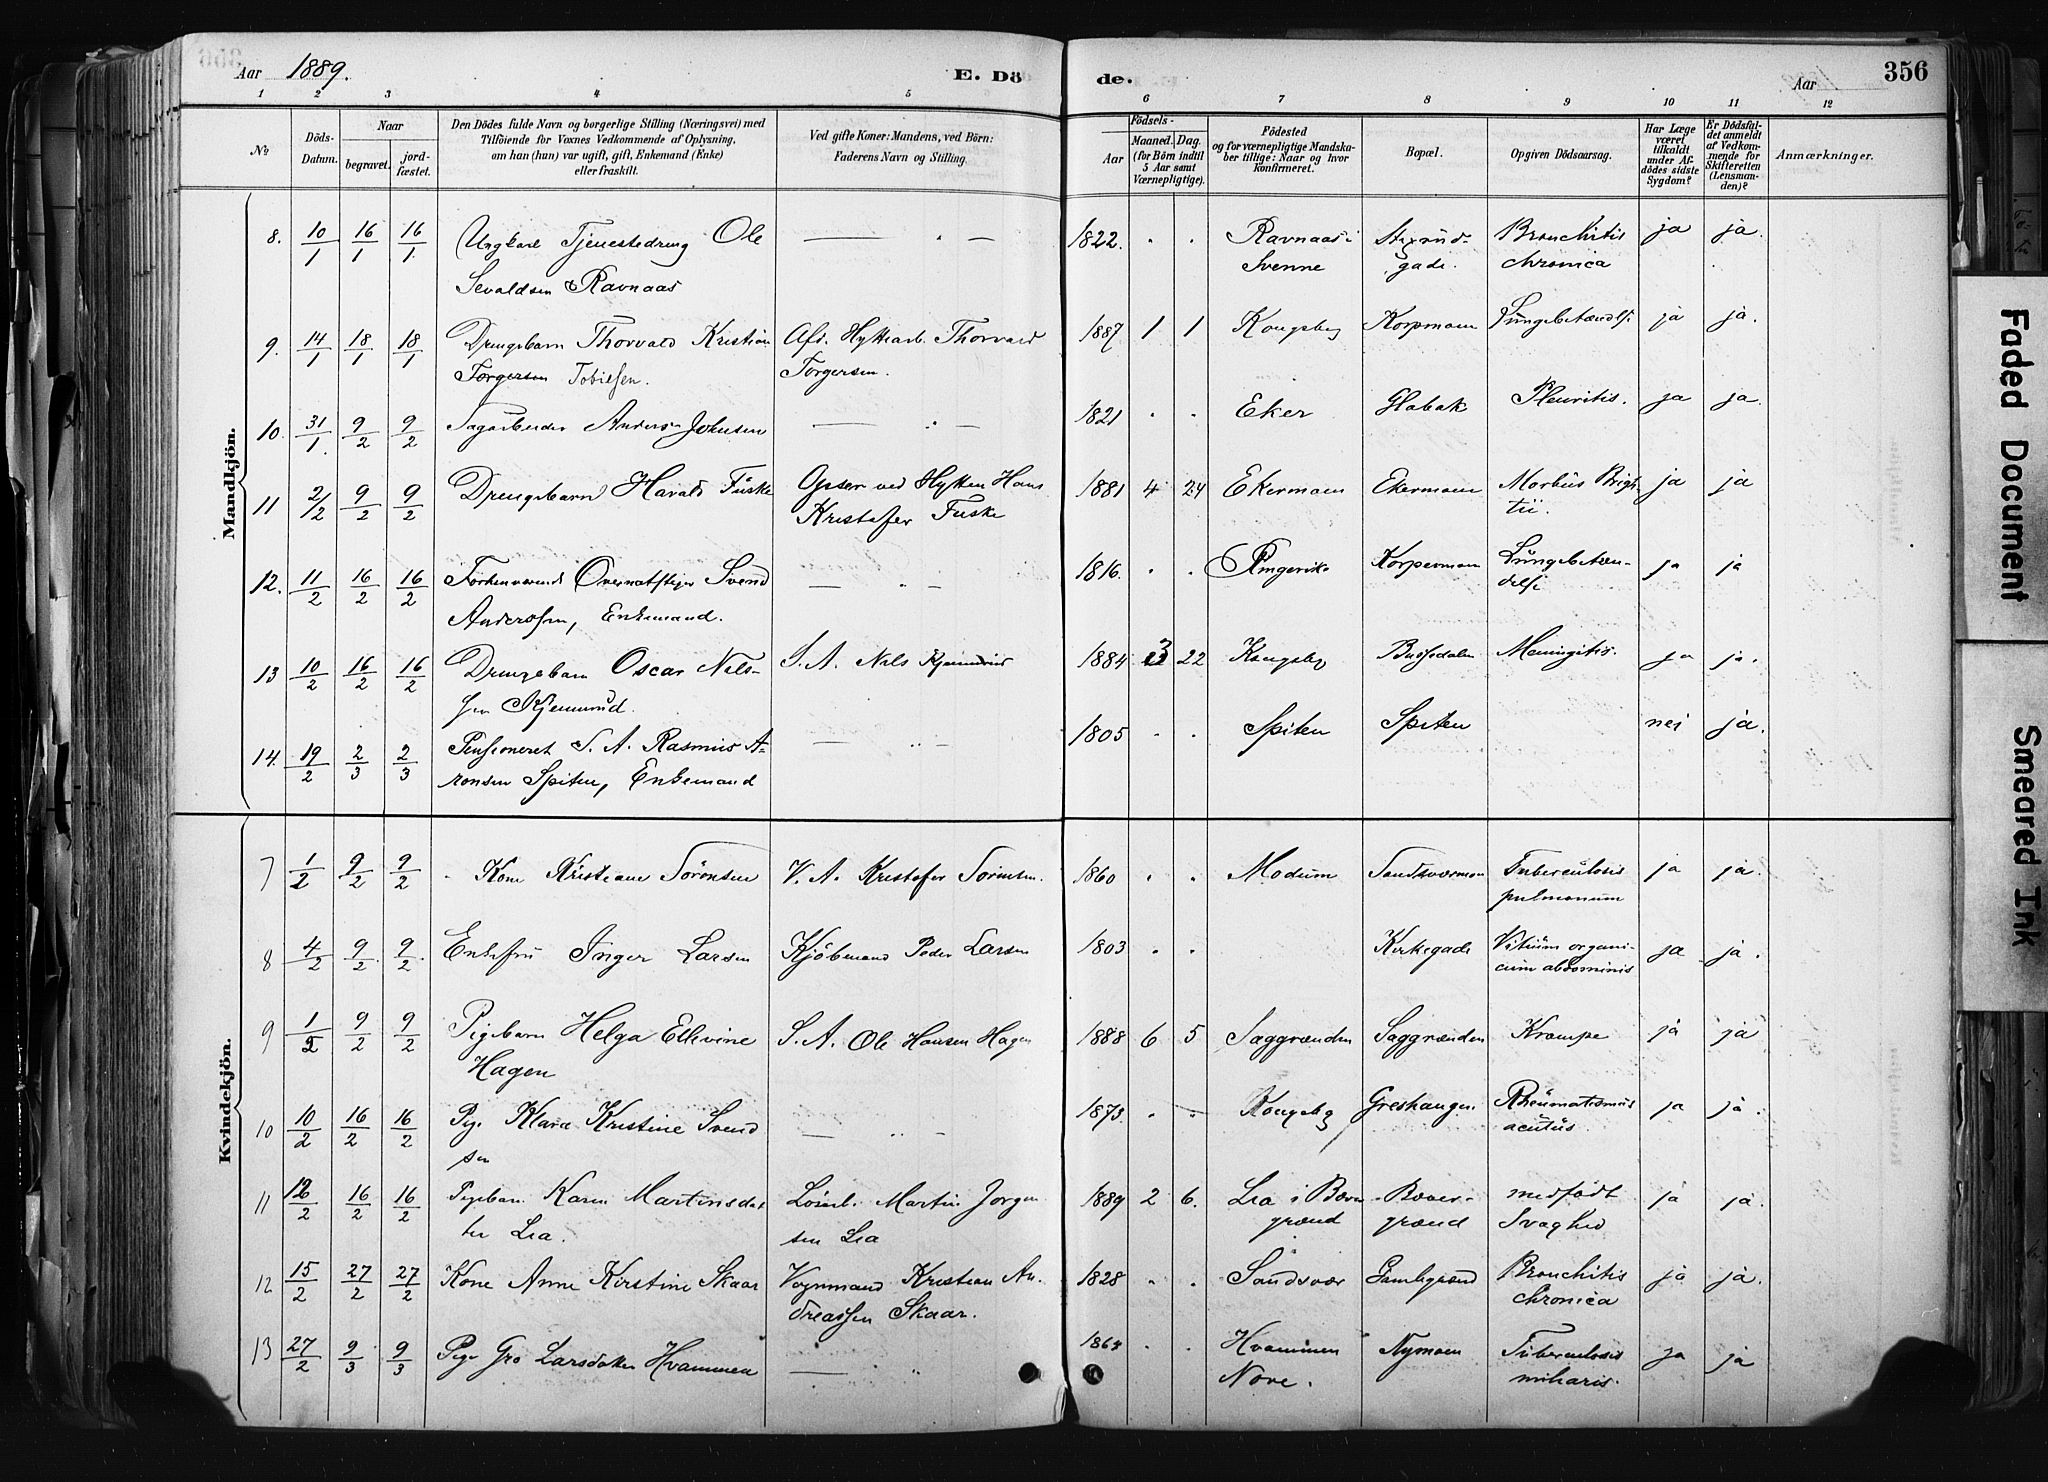 Aar 1889. E. Dö de. Aar 356
1 2 3 4 5 6 7 8 9 10 11 12
No Döds-Datum. Naar begravet. jord-fæstet. Den Dödes fulde Navn og borgerlige Stilling (Næringsvei) med Tilföiende for Voxnes Vedkommende af Oplysning, om han (hun) var ugift, gift, Enkemand (Enke) eller fraskilt. Ved gifte Koner: Mandens, ved Börn: Faderens Navn og Stilling. Födsels- Aar Maaned. Dag. (for Börn indtil 5 Aar samt Værnepligtige). Födested og for værnepligtige Mandskaber tillige: Naar og hvor konfirmeret. Bopæl. Opgiven Dödsaarsag. Har Læge været tilkaldt under Afdödes sidste Sygdom? Er Dödsfaldet anmeldt af Vedkommende for Skifteretten (Lensmanden)? Anmærkninger.
Mandkjön.
8. 10/1 16/1 16/1 Ungkarl Tjenestedreng Ole — " — 1822. " " Ravnaas i ja ja.
Sevaldsen Ravnaas Svenne gade. Bronchitis chronica
9. 14/1 18/1 18/1 Drengebarn Thorvald Kristian Afd. Hyttearb. Thorvald 1887 1 1 Kongsberg Korpmoen Lungebetændelse ja ja.
Torgersen Tobiesen. Torgersen.
10. 31/1 9/2 9/2 Sagarbeider Anders Johnsen — " — 1821 " " Eker Glabak Pleuritis. ja ja.
11 2/2 9/2 9/2 Drengebarn Harald Fuske Opser ved Hytten Hans 1881 4 24 Ekermoen Ekermoen Morbus Brigh- ja ja
Kristofer Fuske tii.
12. 11/2 16/2 16/2 Forhenværende Svend — " — 1816. " " Ringerike Korpmoen Lungebetæn- ja ja
Anderssen, Enkemand. delse
13 10/2 16/2 16/2 Drengebarn Oscar Nils- S. A. Nils Kjemmrud 1884 3 22 Kongsbg Bussedalen Meningitis. ja ja.
sen Kjemmrud.
14. 19/2 2/3 2/3 Pensioneret S. A. Rasmus A- — " — 1805 " " Spiten Spiten nei ja.
ronsen Spiten, Enkemand
Kvindekjön.
7 1/2 9/2 9/2 Kone Kristiane Sörensen V. A. Kristofer Sörensen. 1860 " " Modum Sandsværmoen Tuberculosis ja ja.
pulmonum
8 4/2 9/2 9/2 Enkefru Inger Larsen Kjöbmand Peder Larsen 1803 " " Kirkegade Vitium organi- ja ja.
cum abdominis
9 1/2 9/2 9/2 Pigebarn Helga Ellevine S. A. Ole Hansen Hagen 1888 6 5 Saggrænden Saggrænden Krampe ja ja
Hagen
10 10/2 16/2 16/2 Pige Klara Kristine Svend — " — 1873. " " Kongsbg Rheumatismus ja ja.
sen acutus.
11 12/2 16/2 16/2 Pigebarn Karen Martinsdat Löiarb. Martin Jorgen 1889 2 6. Lia i Bæver -Bæver- medfödt ja ja.
ter Lia. sen Lia grænd grænd Svaghed
12 15/2 27/2 27/2 Kone Anne Kirstine Skaar Vognmand Kristian An- 1828 " " Sandsvær Gamlegrænd Bronchitis ja ja.
dreassen Skaar. chronica
13 27/2 9/3 9/3 Pige Gro Larsdatter Hvammen — " 1864 " " Hvammen Nymoen Tuberculosis ja ja
Nore. miliaris.
Faded Document
Smeared Ink